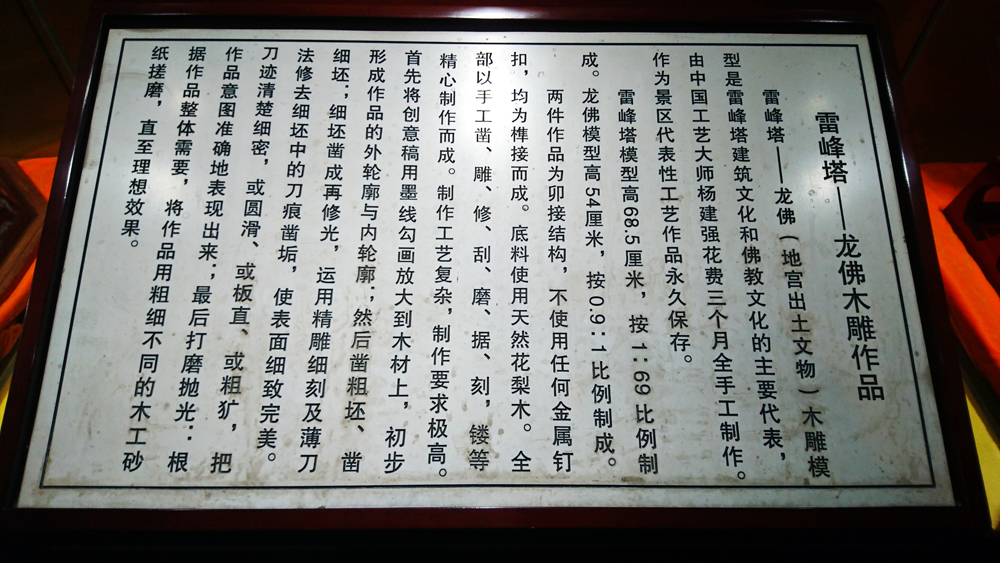 雷峰塔——龙佛木雕作品
雷峰塔——龙佛（地宫出土文物）木雕模
型是雷峰塔建筑文化和佛教文化的主要代表，
由中国工艺大师杨建强花费三个月全手工制作。
作为景区代表性工艺作品永久保存。
雷峰塔模型高68.5厘米，按1:69比例制
成。龙佛模型高54厘米，按0.9:1比例制成。
两件作品为卯接结构，不使用任何金属钉
扣，均为榫接而成。底料使用天然花梨木。全
部以手工凿、雕、修、刮、磨、据、刻，镂等
精心制作而成。制作工艺复杂，制作要求极高。
首先将创意稿用墨线勾画放大到木材上，初步
形成作品的外轮廓与内轮廓；然后凿粗坯、凿
细坯；细坯凿成再修光，运用精雕细刻及薄刀
法修去细坯中的刀痕凿垢，使表面细致完美。
刀迹清楚细密，或圆滑、或板直、或粗犷，把
作品意图准确地表现出来；最后打磨抛光：根
据作品整体需要，将作品用粗细不同的木工砂
纸搓磨，直至理想效果。